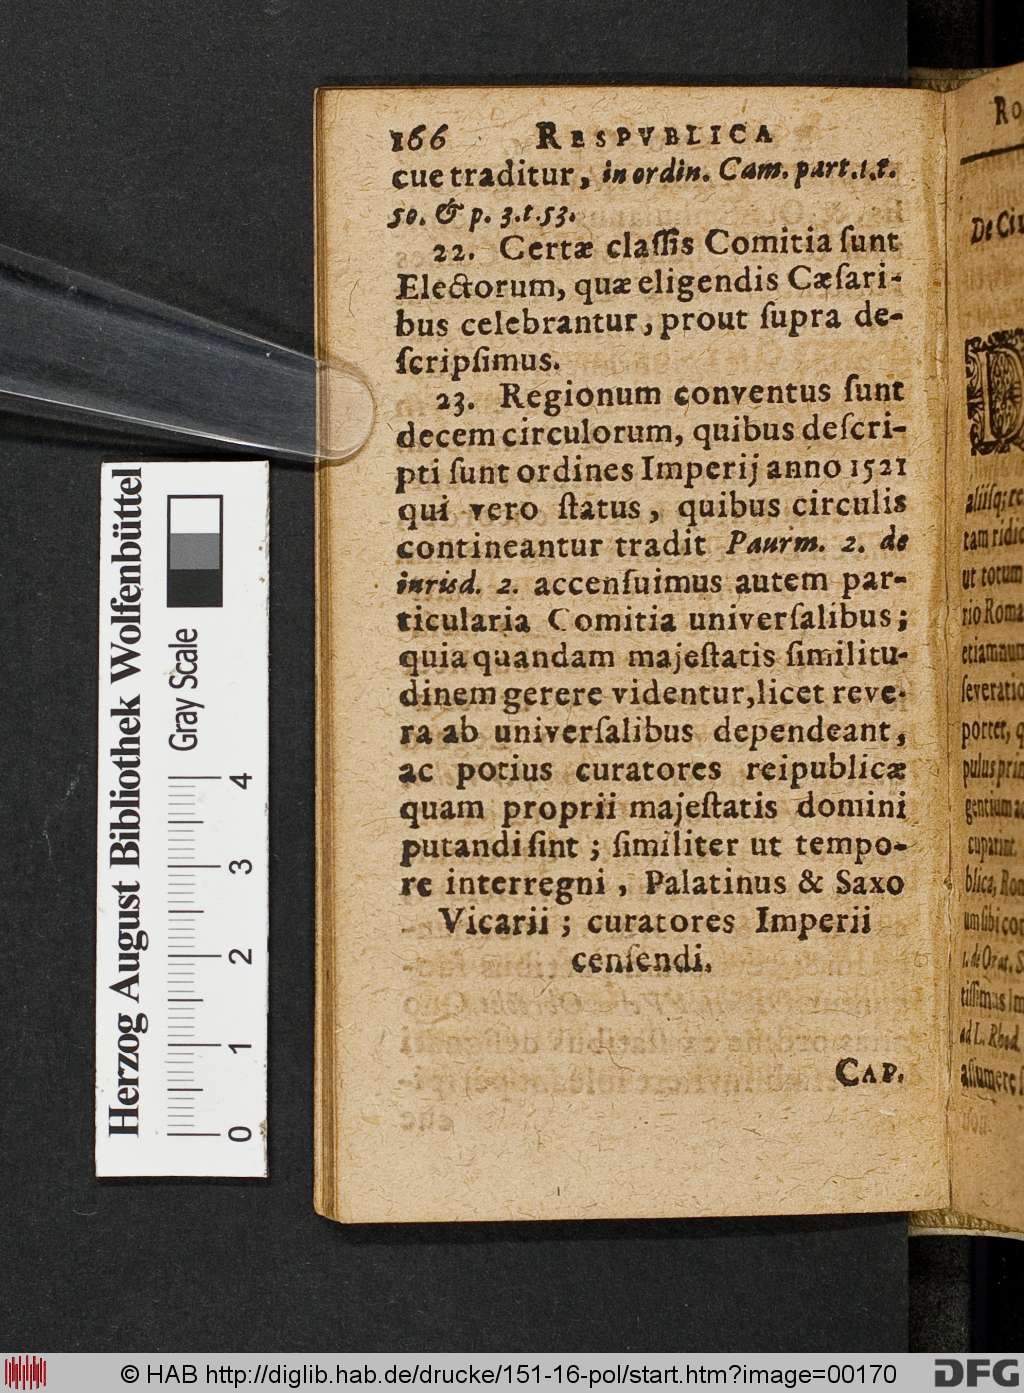 166 RESPVBLICA
cue traditur, in ordin. Cam. part.1.t.
50. & p. 3.t.53.
22. Certæ claſſis Comitia ſunt
Electorum, quæ eligendis Cæſari-
bus celebrantur, prout ſupra de-
ſcripſimus.
23. Regionum conventus ſunt
decem circulorum, quibus deſcri-
pti ſunt ordines Imperij anno 1521
qui vero ſtatus, quibus circulis
contineantur tradit Paurm. 2. de
iurisd. 2. accenſuimus autem par-
ticularia Comitia univerſalibus;
quia quandam majeſtatis ſimilitu-
dinem gerere videntur, licet reve-
ra ab univerſalibus dependeant,
ac potius curatores reipublicæ
quam proprii majeſtatis domini
putandi ſint; ſimiliter ut tempo-
re interregni, Palatinus & Saxo
Vicarii; curatores Imperii
cenſendi.
CAP.
Ro
De Ciu
aliiſq; re
tam ridic
ut totum
rio Roma
etiamnum
ſeveratio
portet, q
pulus prin
gentium ac
cuparint.
blica, Rom
um ſibi cor
1. de Orat. S
tiſſimus Im
ad L. Rhod.
aſſumere ſ
Herzog August Bibliothek Wolfenbüttel
Gray Scale
0 1 2 3 4
© HAB http://diglib.hab.de/drucke/151-16-pol/start.htm?image=00170
DFG